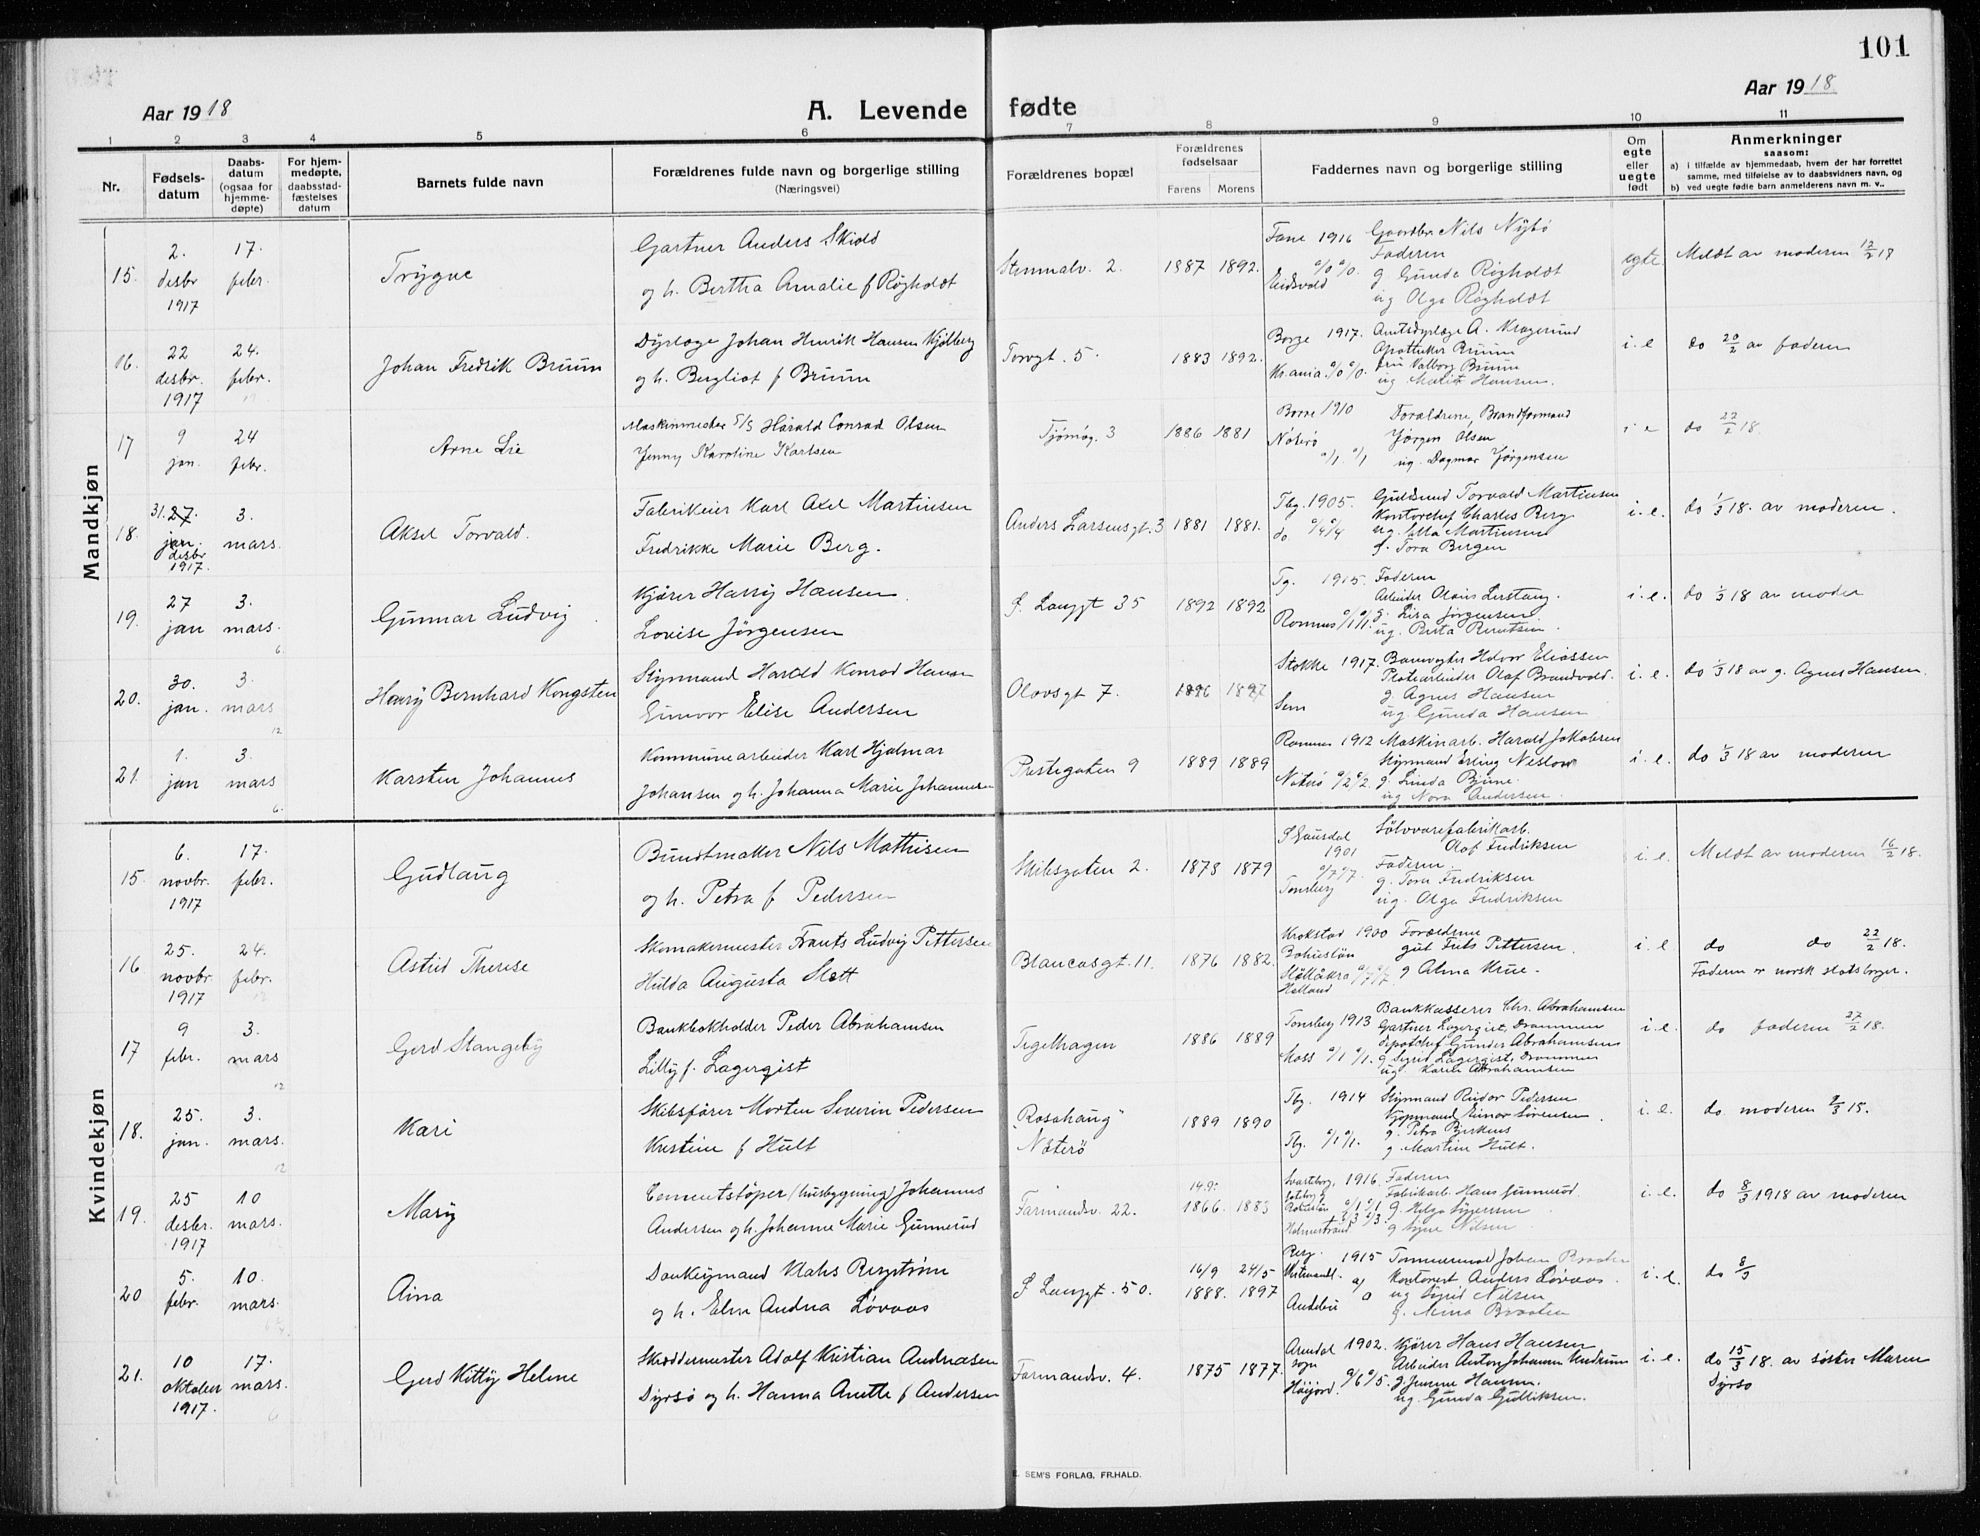 101
Aar 1918
A. Levende fødte
Aar 1918
1 2 3 4 5 6 7 8 9 10 11
Nr.
Fødsels-
datum
Daabs-
datum
(ogsaa for
hjemme-
døpte)
For hjem-
medøpte,
daabsstad-
fæstelses
datum
Barnets fulde navn
Forældrenes fulde navn og borgerlige stilling
(Næringsvei)
Forældrenes bopæl
Forældrenes
fødselsaar
Farens Morens
Faddernes navn og borgerlige stilling
Om
egte
eller
uegte
født
Anmerkninger
saasom:
a) i tilfælde av hjemmedaab, hvem der har forrettet
samme, med tilføielse av to daabsvidners navn, og
b) ved uegte fødte barn anmelderens navn m. v..
Mandkjøn
15.
2.
desbr
1917
17.
febr.
Trygve
Gartner Anders Skiold
og h. Bertha Amalie f Røgholdt
Stenmalv. 2.
1887 1892.
Fane 1916
Eidsvold
Gaardbr Nils Nybø
Faderen
g Gunda Røgholdt
ug Olga Røgholdt
egte.
Meldt av moderen 12/2 18
16.
22
desbr.
1917
24.
febr.
Johan Fredrik Bruun
Dyrlæge Johan Henrik Hansen Kjølberg
og h. Bergliot f Bruun
Torvgt. 5.
1883 1892.
Borge 1917.
Kr.ania. 0/0 0/0.
Amtsdyrlæge A. Kragerund
Apotheker Bruun
fru Valborg Bruun
ug Marit Hansen.
i. e
do 20/2 av faderen
17
9
jan.
24
febr.
Arne Lie
Maskinmester S/S Harald Conrad Olsen
Jenny Karoline Karlsen
Tjømøg. 3
1886 1881
Borre 1910
Nøterø
0/1. 0/1
Forældrene, Brandformand
Jørgen Olsen
ug. Dagmar Jørgensen
i e
do 22/2 18.
18.
31. 27.
jan.
desbr
1917.
3.
mars.
Aksel Torvald.
Fabrikeier Karl Axel Martinsen
Fredrikke Marie Berg.
Anders Larsensgt. 3
1881 1881.
Tbg. 1905.
do. 0/4 0/4
Guldsmd Torvald Martinsen
Kontorchef Charles Berg
ug. Etta Martinsen
f. Tora Bergen
i. e.
do 1/3 18. av moderen.
19.
27
jan
3.
mars.
6.
Gunnar Ludvig
Kjører Harry Hansen.
Lovise Jørgensen
S. Langgt 35
1892 1892
Tg. 1915.
Ramnes 0/1 0/1.
Faderen
Arbeider Olavis Lerstang.
g. Lisa Jørgensen
ug. Berta Berntsen.
i. e.
do 1/3 18 av moder
20.
30.
jan.
3.
mars
12
Henry Bernhard Kongsten
Styrmand Harald Konrad Hansen
Gunvor Elise Andersen
Olavsgt 7.
1896 1897
Stokke 1917.
Sem
Banevogter Hdvor Eliassen
Platearbeider Olaf Brandvold.
g. Agnes Hansen
ug. Gunda Hansen
i. e.
do 1/3 18 av g. Agnes Hansen.
21.
1.
jan
3.
mars
6.
Karsten Johannes
Kommunearbeider Karl Hjalmar
Johansen og h. Johanna Marie Johannesen
Prestegaten 9
1889 1889
Ramnes 1912
Nøterø 0/2 0/2.
Maskinarb. Harald Jakobsen
Styrmand Erling Neslow
g. Linda Bjune.
ug Nora Andersen.
i. e.
do 1/3 18 av moderen
Kvindekjøn
15.
6.
novbr.
1917
17.
febr.
Gudlaug
Bundtmaker Nils Mathisen
og h. Petra f Pedersen
Skibsgaten 2.
1878 1879
S Gausdal
1901
0/7 0/7.
Tønsberg
Sølvvarefabrikarb.
Olaf Fredriksen
Faderen.
g. Tora Fredriksen
ug. Olga Fredriksen
i. e.
Meldt av moderen 16/2 18.
16
25.
novbr.
1917
24.
febr.
12
Astrid Therese
Skomakermester Frants Ludvig Pettersen
Hulda Augusta Slett
Blancasgt. 11.
1876 1882.
Krokstad 1900
Bohuslän
Halland
Forældrene
gut Frits Pettersen.
g Alma Krue.
i. e
do do 22/2 18.
Faderen er norsk statsborger.
17
9
febr.
3.
mars
12
Gerd Stangeby
Bankbokholder Peder Abrahamsen
Lilly f. Lagerqist
Teglhagen
1886 1889
Tønsberg 1913
Moss 0/1 0/1.
Bankkasserer Chr. Abrahamsen
Gartner Lagerqist, Drammen
Depotchef Gunder Abrahamsen
g Sigrid Lagerqist, Drammen
ug Karen Abrahamsen
i. e.
do faderen 27/2 18.
18.
25.
jan.
3.
mars.
12
Kari
Skibsfører Morten Severin Pedersen
Kristine f Hult
"Rosahaug"
Nøterø
1889 1890
Tbg. 1914
Tbg. 0/1 0/1.
Styrmand Reidar Pedersen
Kjøpmand Einar Sørensen.
g. Petra Bjerknes
g. Martine Hult.
i. e.
do. moderen 2/3 15.
19.
25
desbr.
1917
10
mars.
Mary
Cementstøper (husbygning) Johannes
Andersen og h. Johanne Marie Gunnerud
Farmandsv. 22.
14.9.
1866. 1883
1916.
Holmestrand
Faderen
Fabrikarb. Hans Gunnerud.
g. Helga Sigurssen
g Signe Nilsen
i. e.
do 8/3 1918 av moderen
20
5.
febr.
10.
mars.
Aina
Donkeymand Klahs Bergstrøm
og h. Elna Andrea Løvaas
S Langgt. 50.
16/9 24/5
1888. 1897
Berg.
1915
Andebu
Tømmermand Johan Braaten
Kontorist Anders Løvaas.
ug Sigrid Nilsen
g. Mina Braaten
i. e.
do 8/3
21.
10
oktober
1917.
17.
mars.
6
Gerd Kitty Helene
Skræddermester Adolf Kristian Andreasen
Dyrsø og h. Hanna Anette f Andersen
Farmandsv. 4.
1875 1877.
Arendal 1902.
sogn
Høijord. 0/6 0/5.
Kjører Hans Hansen
Arbeider Anton Johannes
g. Jenine Hansen.
ug. Gunda Gulliksen.
i. e.
do 15/3 18. av søster Maren
Dyrsø
E. SEM'S FORLAG, FR.HALD.